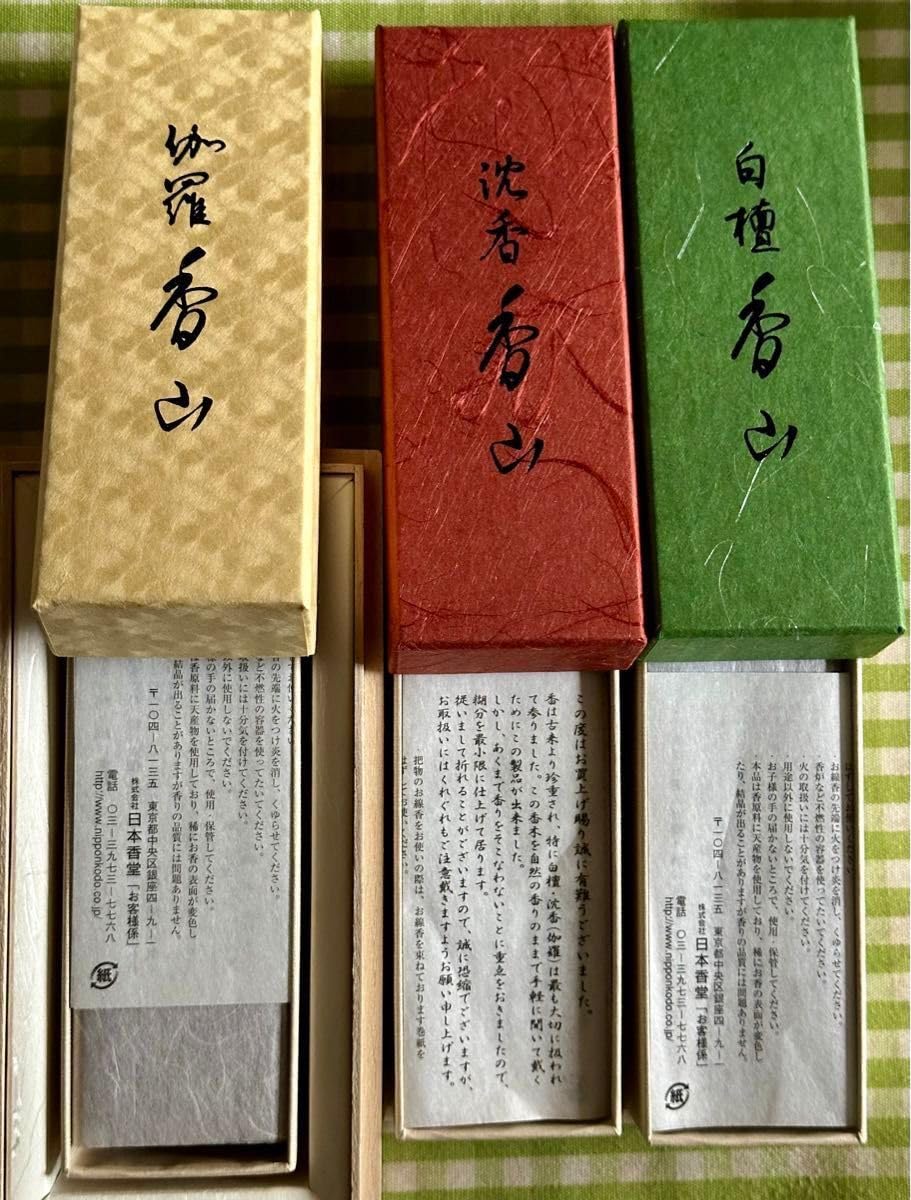 伽羅香山
沈香香山
白檀香山
の先端に火をつけ炎を消し、くゆらせてください。
ど不燃性の容器を使ってたいてください。
取扱いには十分気を付けてください。
以外に使用しないでください。
様の手の届かないところで、使用・保管してください。
は香原料に天産物を使用しており、稀にお香の表面が変色し
結晶が出ることがありますが香りの品質には問題ありません。
〒一〇四-八一三五 東京都中央区銀座四-九-一
株式会社日本香堂「お客様係」
電話 〇三-三九七三-七七六八
http://www.nipponkodo.co.jp/
紙
この度はお買上げ賜り誠に有難うございました。
香は古来より珍重され、特に白檀・沈香(伽羅)は最も大切に扱われ
て参りました。この香木を自然の香りのままで手軽に聞いて戴く
ために この製品が出来ました。
しかし、あくまで香りをそこなわないことに重点をおきましたので、
糊分を最小限に仕上げて居ります。
従いまして折れることがございますので、誠に恐縮でございますが、
お取扱いにはくれぐれもご注意戴きますようお願い申し上げます。
把物のお線香をお使いの際は、お線香を束ねております巻紙を
はずしてお使いください。
お線香の先端に火をつけ炎を消し、くゆらせてください。
香炉など不燃性の容器を使ってたいてください。
火の取扱いには十分気を付けてください。
用途以外に使用しないでください。
お子様の手の届かないところで、使用・保管してください。
本品は香原料に天産物を使用しており、稀にお香の表面が変色し
たり、結晶が出ることがありますが香りの品質には問題ありません。
〒一〇四-八一三五 東京都中央区銀座四-九-一
株式会社日本香堂「お客様係」
電話 〇三-三九七三-七七六八
http://www.nipponkodo.co.jp/
紙